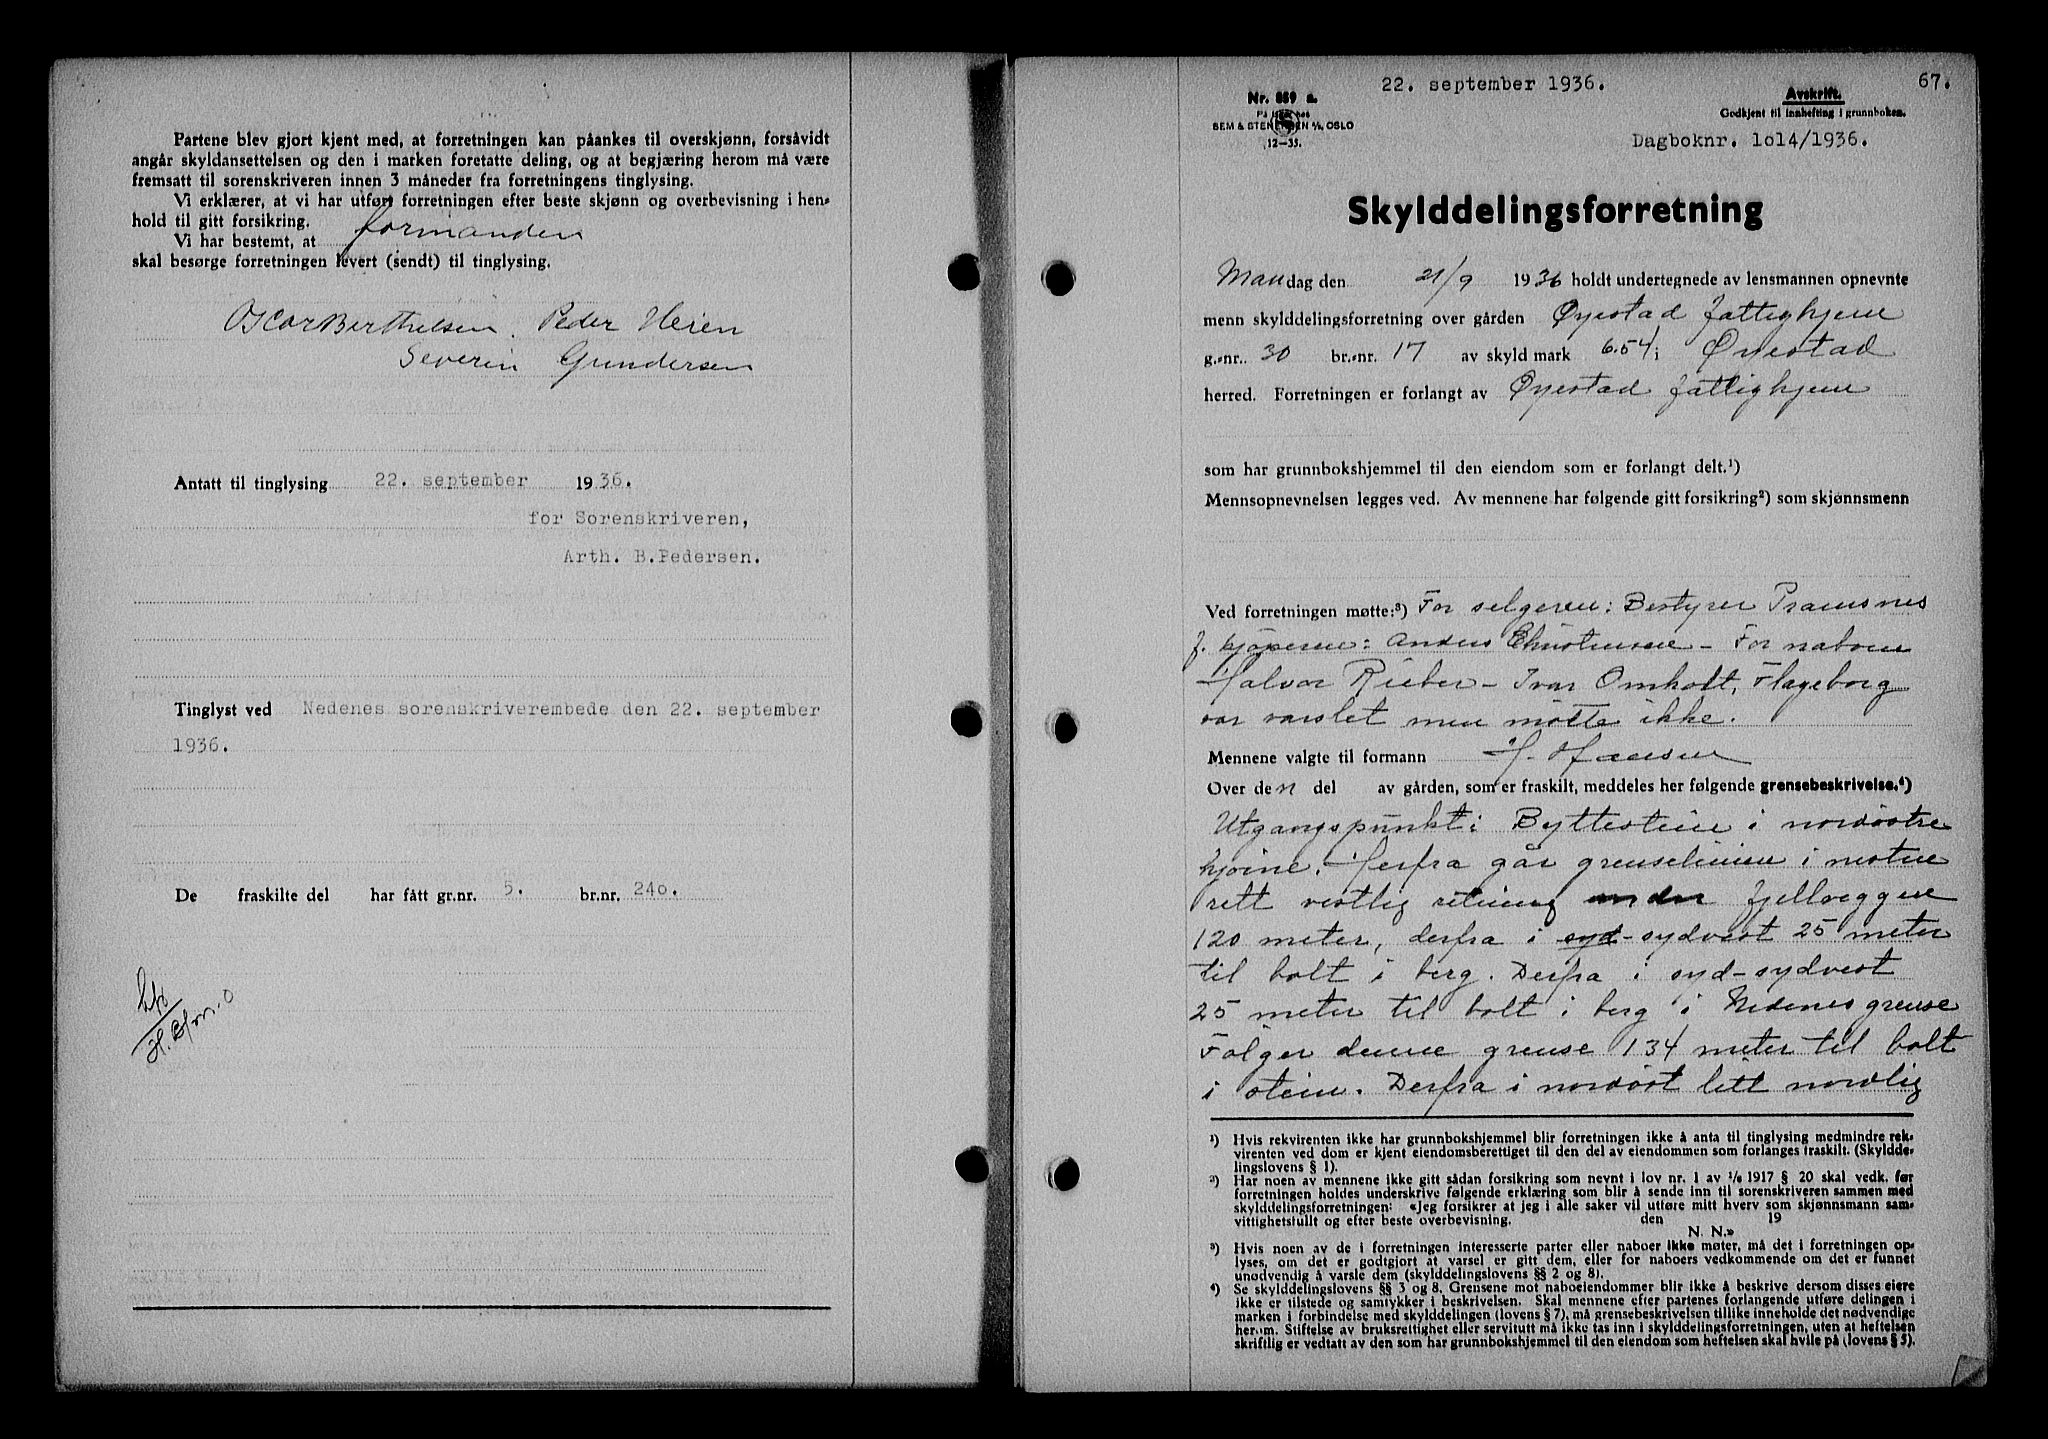 Partene blev gjort kjent med, at forretningen kan påankes til overskjønn, forsåvidt
angår skyldansettelsen og den i marken foretatte deling, og at begjæring herom må være
fremsatt til sorenskriveren innen 3 måneder fra forretningens tinglysing.
Vi erklærer, at vi har utført forretningen efter beste skjønn og overbevisning i hen-
hold til gitt forsikring.
Vi har bestemt, at formanden
skal besørge forretningen levert (sendt) til tinglysing.
Oscar Berthelsen. Peder Heien
Severin Gundersen
Antatt til tinglysing 22. september 1936.
for Sorenskriveren,
Arth. B.Pedersen.
Tinglyst ved Nedenes sorenskriverembede den 22. september
1936.
De fraskilte del har fått gr.nr. 5. br.nr. 240.
22. september 1936.
67.
Nr. 889 a.
På lager hos
SEM & STENERSEN A/S, OSLO
12-35.
Avskrift.
Godkjent til innhefting i grunnboken.
Dagboknr. 1014/1936.
Skylddelingsforretning
Mandag den 21/9 1936 holdt undertegnede av lensmannen opnevnte
menn skylddelingsforretning over gården Øyestad fattighjem
g.-nr. 30 br.-nr. 17 av skyld mark 6.54 i Øyestad
herred. Forretningen er forlangt av Øyestad fattighjem
som har grunnbokshjemmel til den eiendom som er forlangt delt.¹)
Mennsopnevnelsen legges ved. Av mennene har følgende gitt forsikring²) som skjønnsmenn
Ved forretningen møtte:³) For selgeren: Bestyrer Pramsnes
f. kjøperen: Anders Christensen - For naboen
Halvor Rieber - Ivar Omholt, Flageborg
var varslet men møtte ikke.
Mennene valgte til formann H. Hansen
Over den del av gården, som er fraskilt, meddeles her følgende grensebeskrivelse.⁴)
Utgangspunkt: Byttestein i nordøstre
hjørne. Herfra går grenselinien i nesten
rett vestlig retning under fjellveggen
120 meter, derfra i syd-sydvest 25 meter
til bolt i berg. Derfra i syd-sydvest
25 meter til bolt i berg i Nedenes grense
Følger denne grense 134 meter til bolt
i stein. Derfra i nordøst litt nordlig
¹) Hvis rekvirenten ikke har grunnbokshjemmel blir forretningen ikke å anta til tinglysing medmindre rek-
virenten ved dom er kjent eiendomsberettiget til den del av eiendommen som forlanges fraskilt. (Skyldde-
lingslovens § 1).
²) Har noen av mennene ikke gitt sådan forsikring som nevnt i lov nr. 1 av ¹/₆ 1917 § 20 skal vedk. før
forretningen holdes underskrive følgende erklæring som blir å sende inn til sorenskriveren sammen med
skylddelingsforretningen: «Jeg forsikrer at jeg i alle saker vil utføre mitt hverv som skjønnsmann sam-
vittighetsfullt og efter beste overbevisning. den 19
N. N.»
³) Hvis noen av de i forretningen interesserte parter eller naboer ikke møter, må det i forretningen op-
lyses, om det er godtgjort at varsel er gitt dem, eller for naboers vedkommende om det er funnet
unødvendig å varsle dem (skylddelingslovens §§ 2 og 8).
⁴) Se skylddelingslovens §§ 3 og 8. Grensene mot naboeiendommer blir ikke å beskrive dersom disses eiere
ikke er tilstede og samtykker i beskrivelsen. Skal mennene efter partenes forlangende utføre delingen i
marken i forbindelse med skylddelingen (lovens § 7), må grensebeskrivelsen tillike inneholde det nødvendige
herom. Stiftelse av bruksrettighet eller servitutt må ikke tas inn i skylddelingsforretningen, uten at heftelsen
skriftlig er vedtatt av den som har grunnbokshjemmel til den eiendom som heftelsen skal hvile på (lovens § 5).